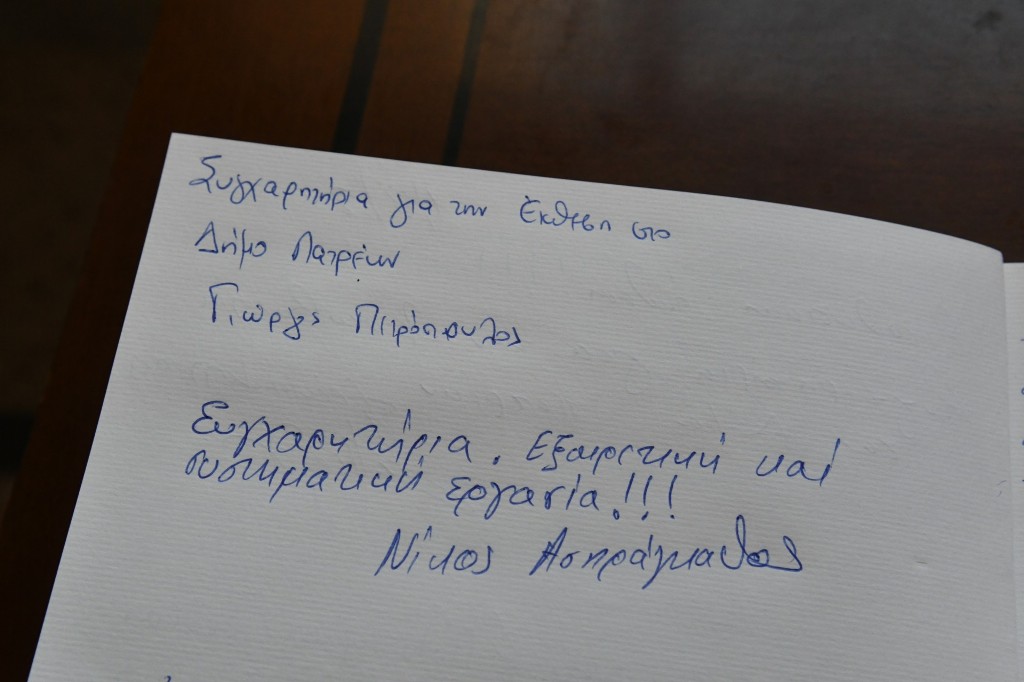 Συγχαρητήρια για την Έκθεση στο
Δήμο Πατρέων
Γιώργος Πετρόπουλος
Συγχαρητήρια. Εξαιρετική και
συστηματική εργασία!!!
Νίκος Ασπράγκαθος